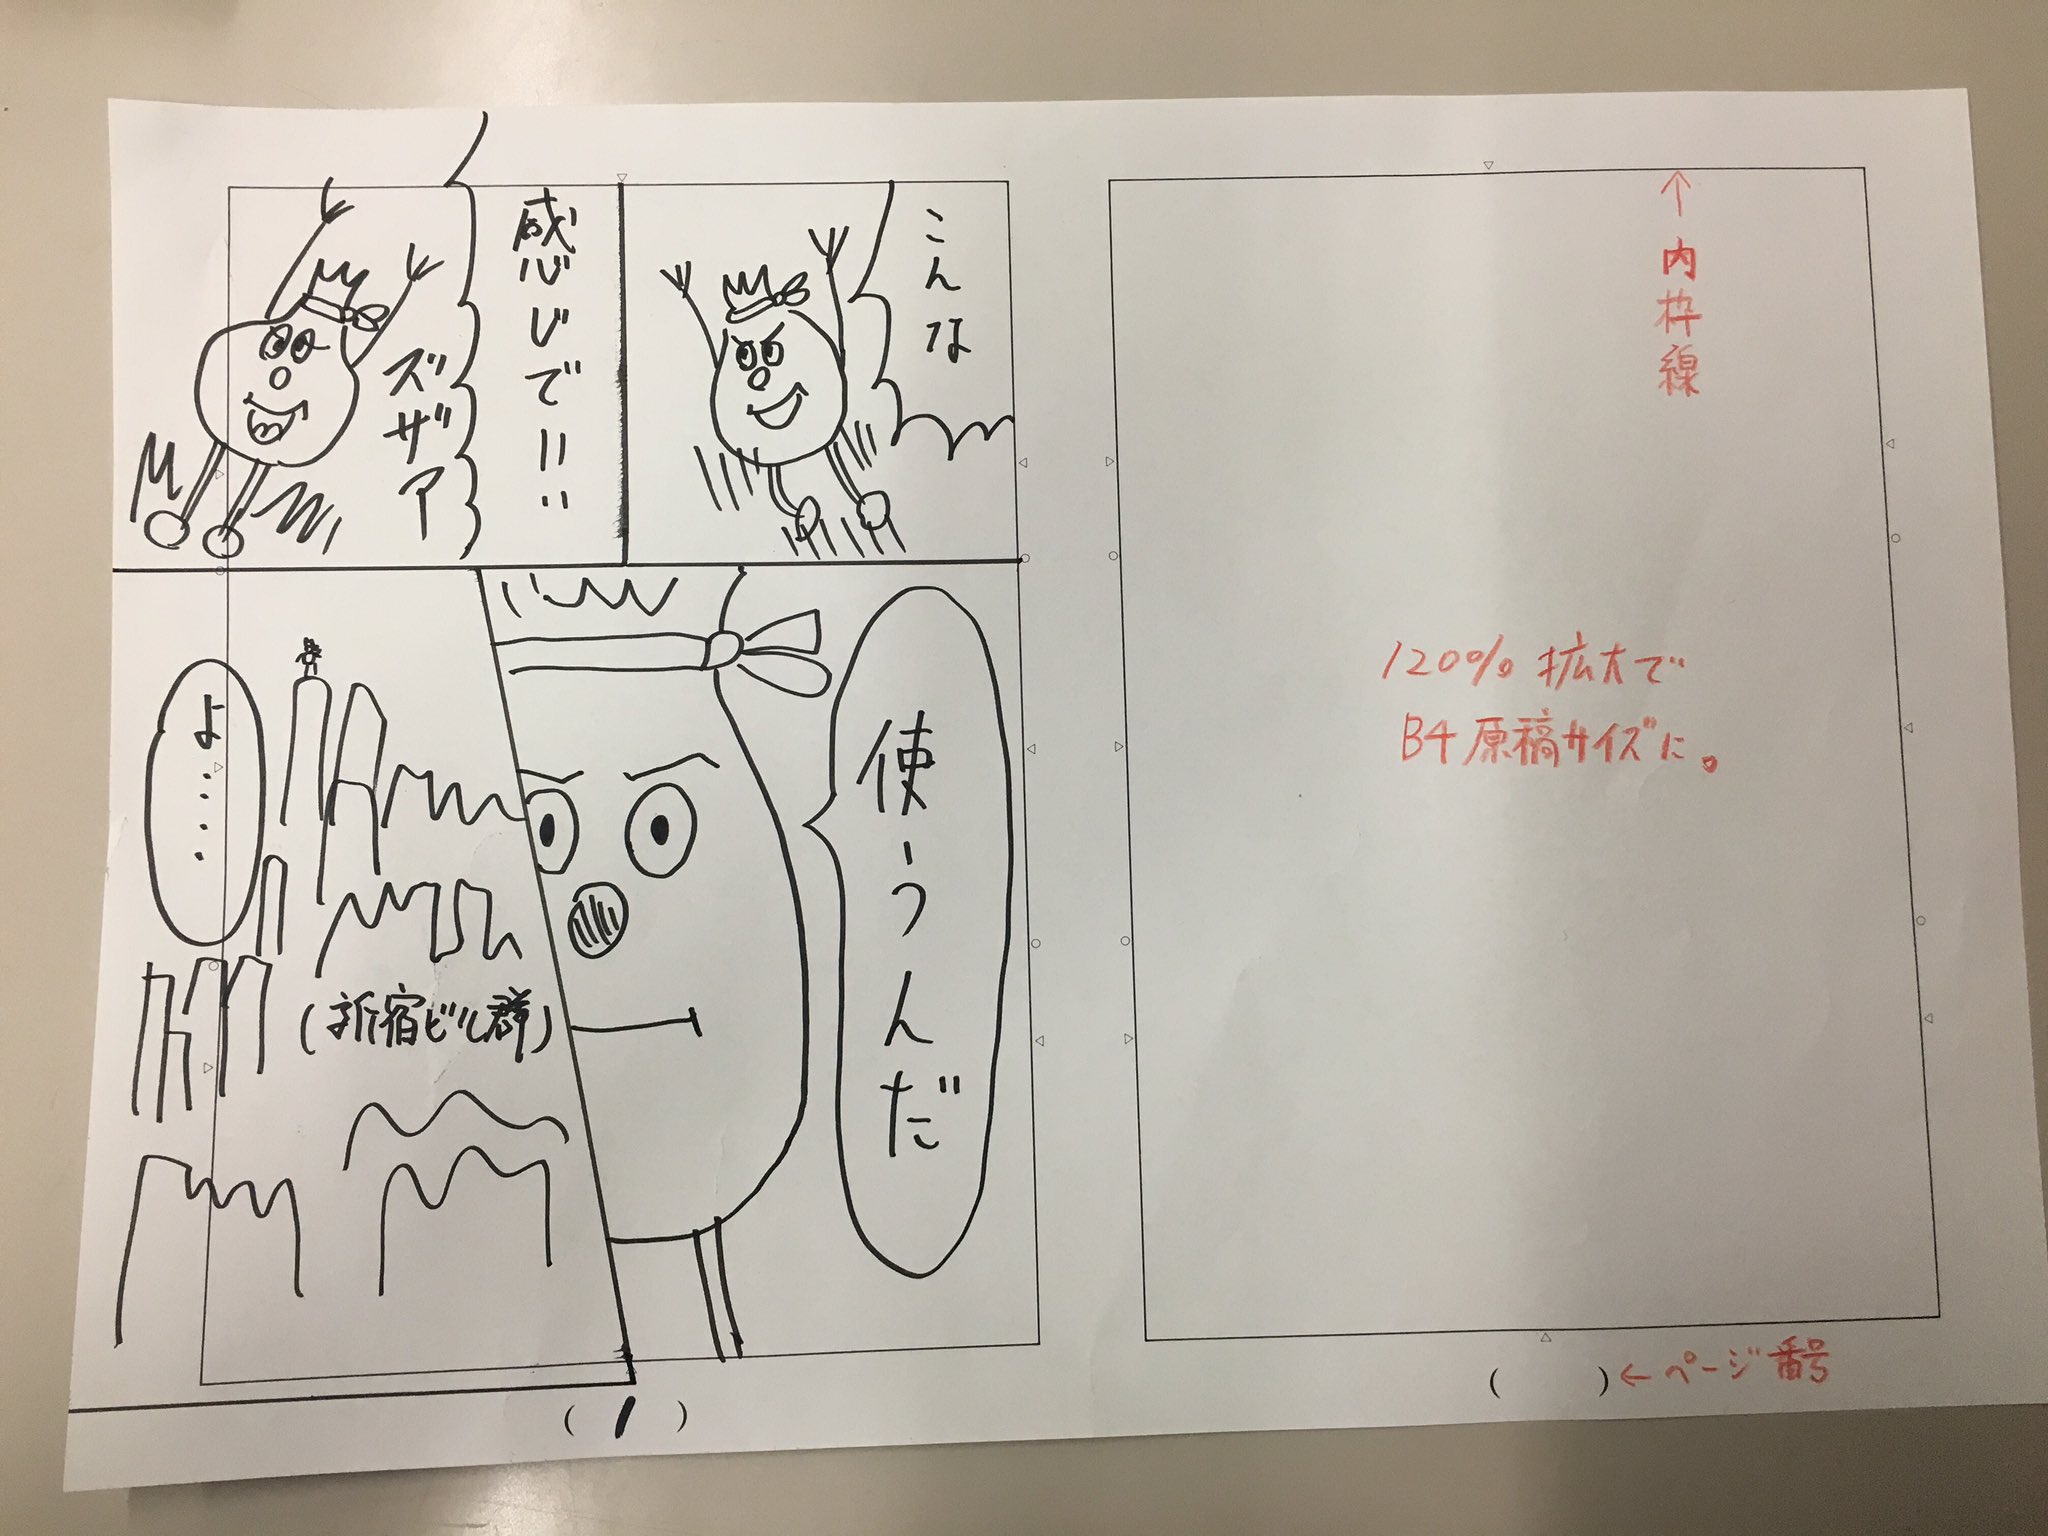 こんな
感じで!!
ズザァ
使うんだ
よ……
(新宿ビル群)
(1)
↑内枠線
120%拡大で
B4原稿サイズに。
( )←ページ番号